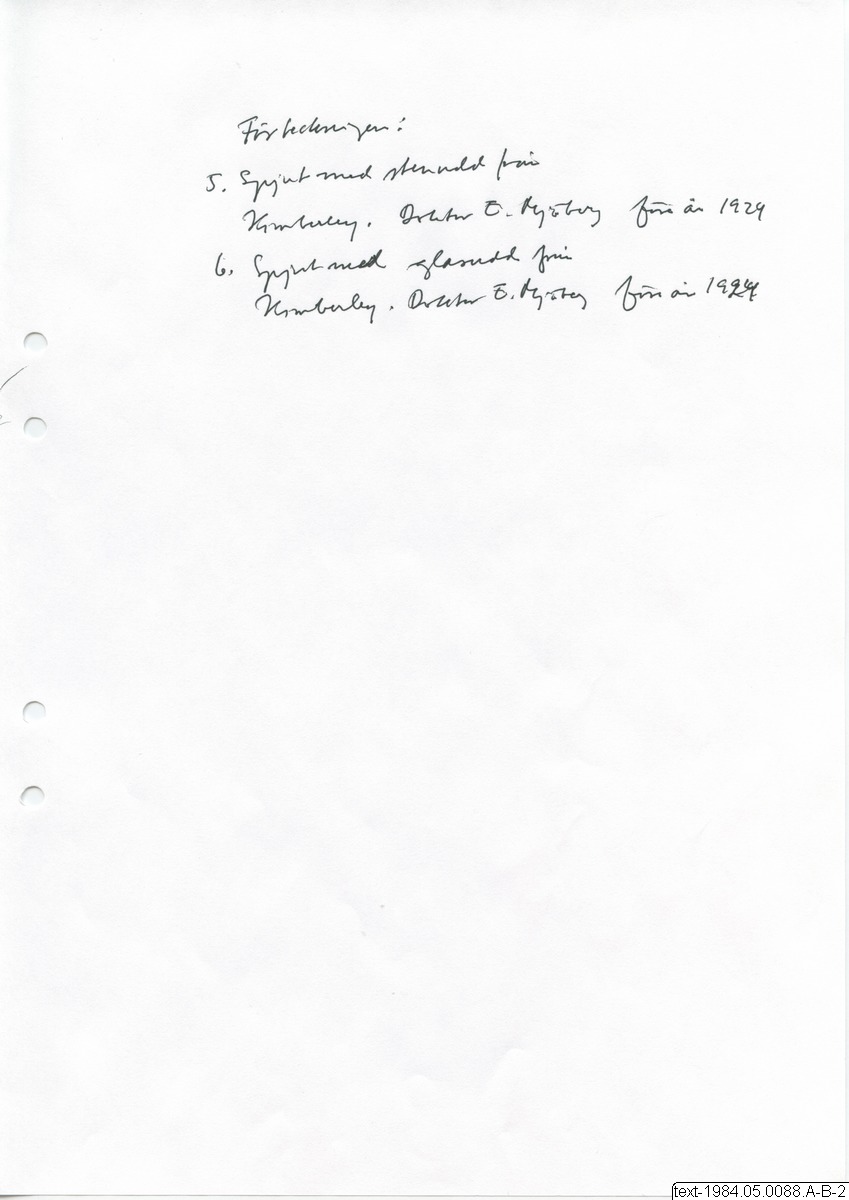 Förteckningen:
5. Spjut med stenudd från
Kimberley. Doktor E. Mjöberg före år 1929
6. Spjut med glasudd från
Kimberley. Doktor E. Mjöberg före år 1929
text-1984.05.0088.A-B-2